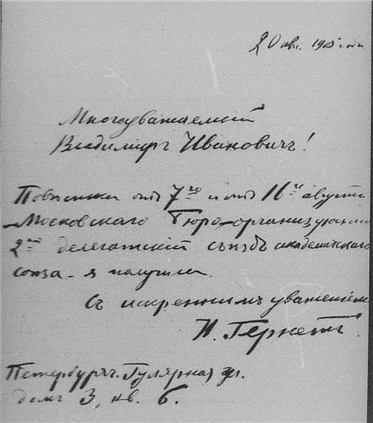 20 авг. 1905 года
Многоуважаемый
Владимиръ Ивановичъ!
Повѣстки отъ 7го и отъ 16го августа
Московскаго Бюро организующаго
2ой делегатскій съѣздъ академическаго
союза - я получила.
Съ искреннимъ уваженіемъ
Н. Гернетъ.
Петербургъ. Гулярная ул.
домъ 3, кв. 6.